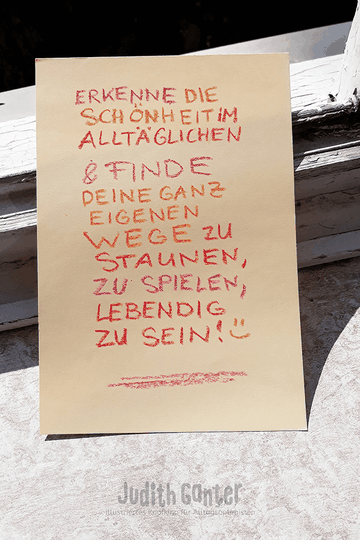 ERKENNE DIE
SCHÖNHEIT IM
ALLTÄGLICHEN
& FINDE
DEINE GANZ
EIGENEN
WEGE ZU
STAUNEN,
ZU SPIELEN,
LEBENDIG
ZU SEIN! :)
Judith Ganter